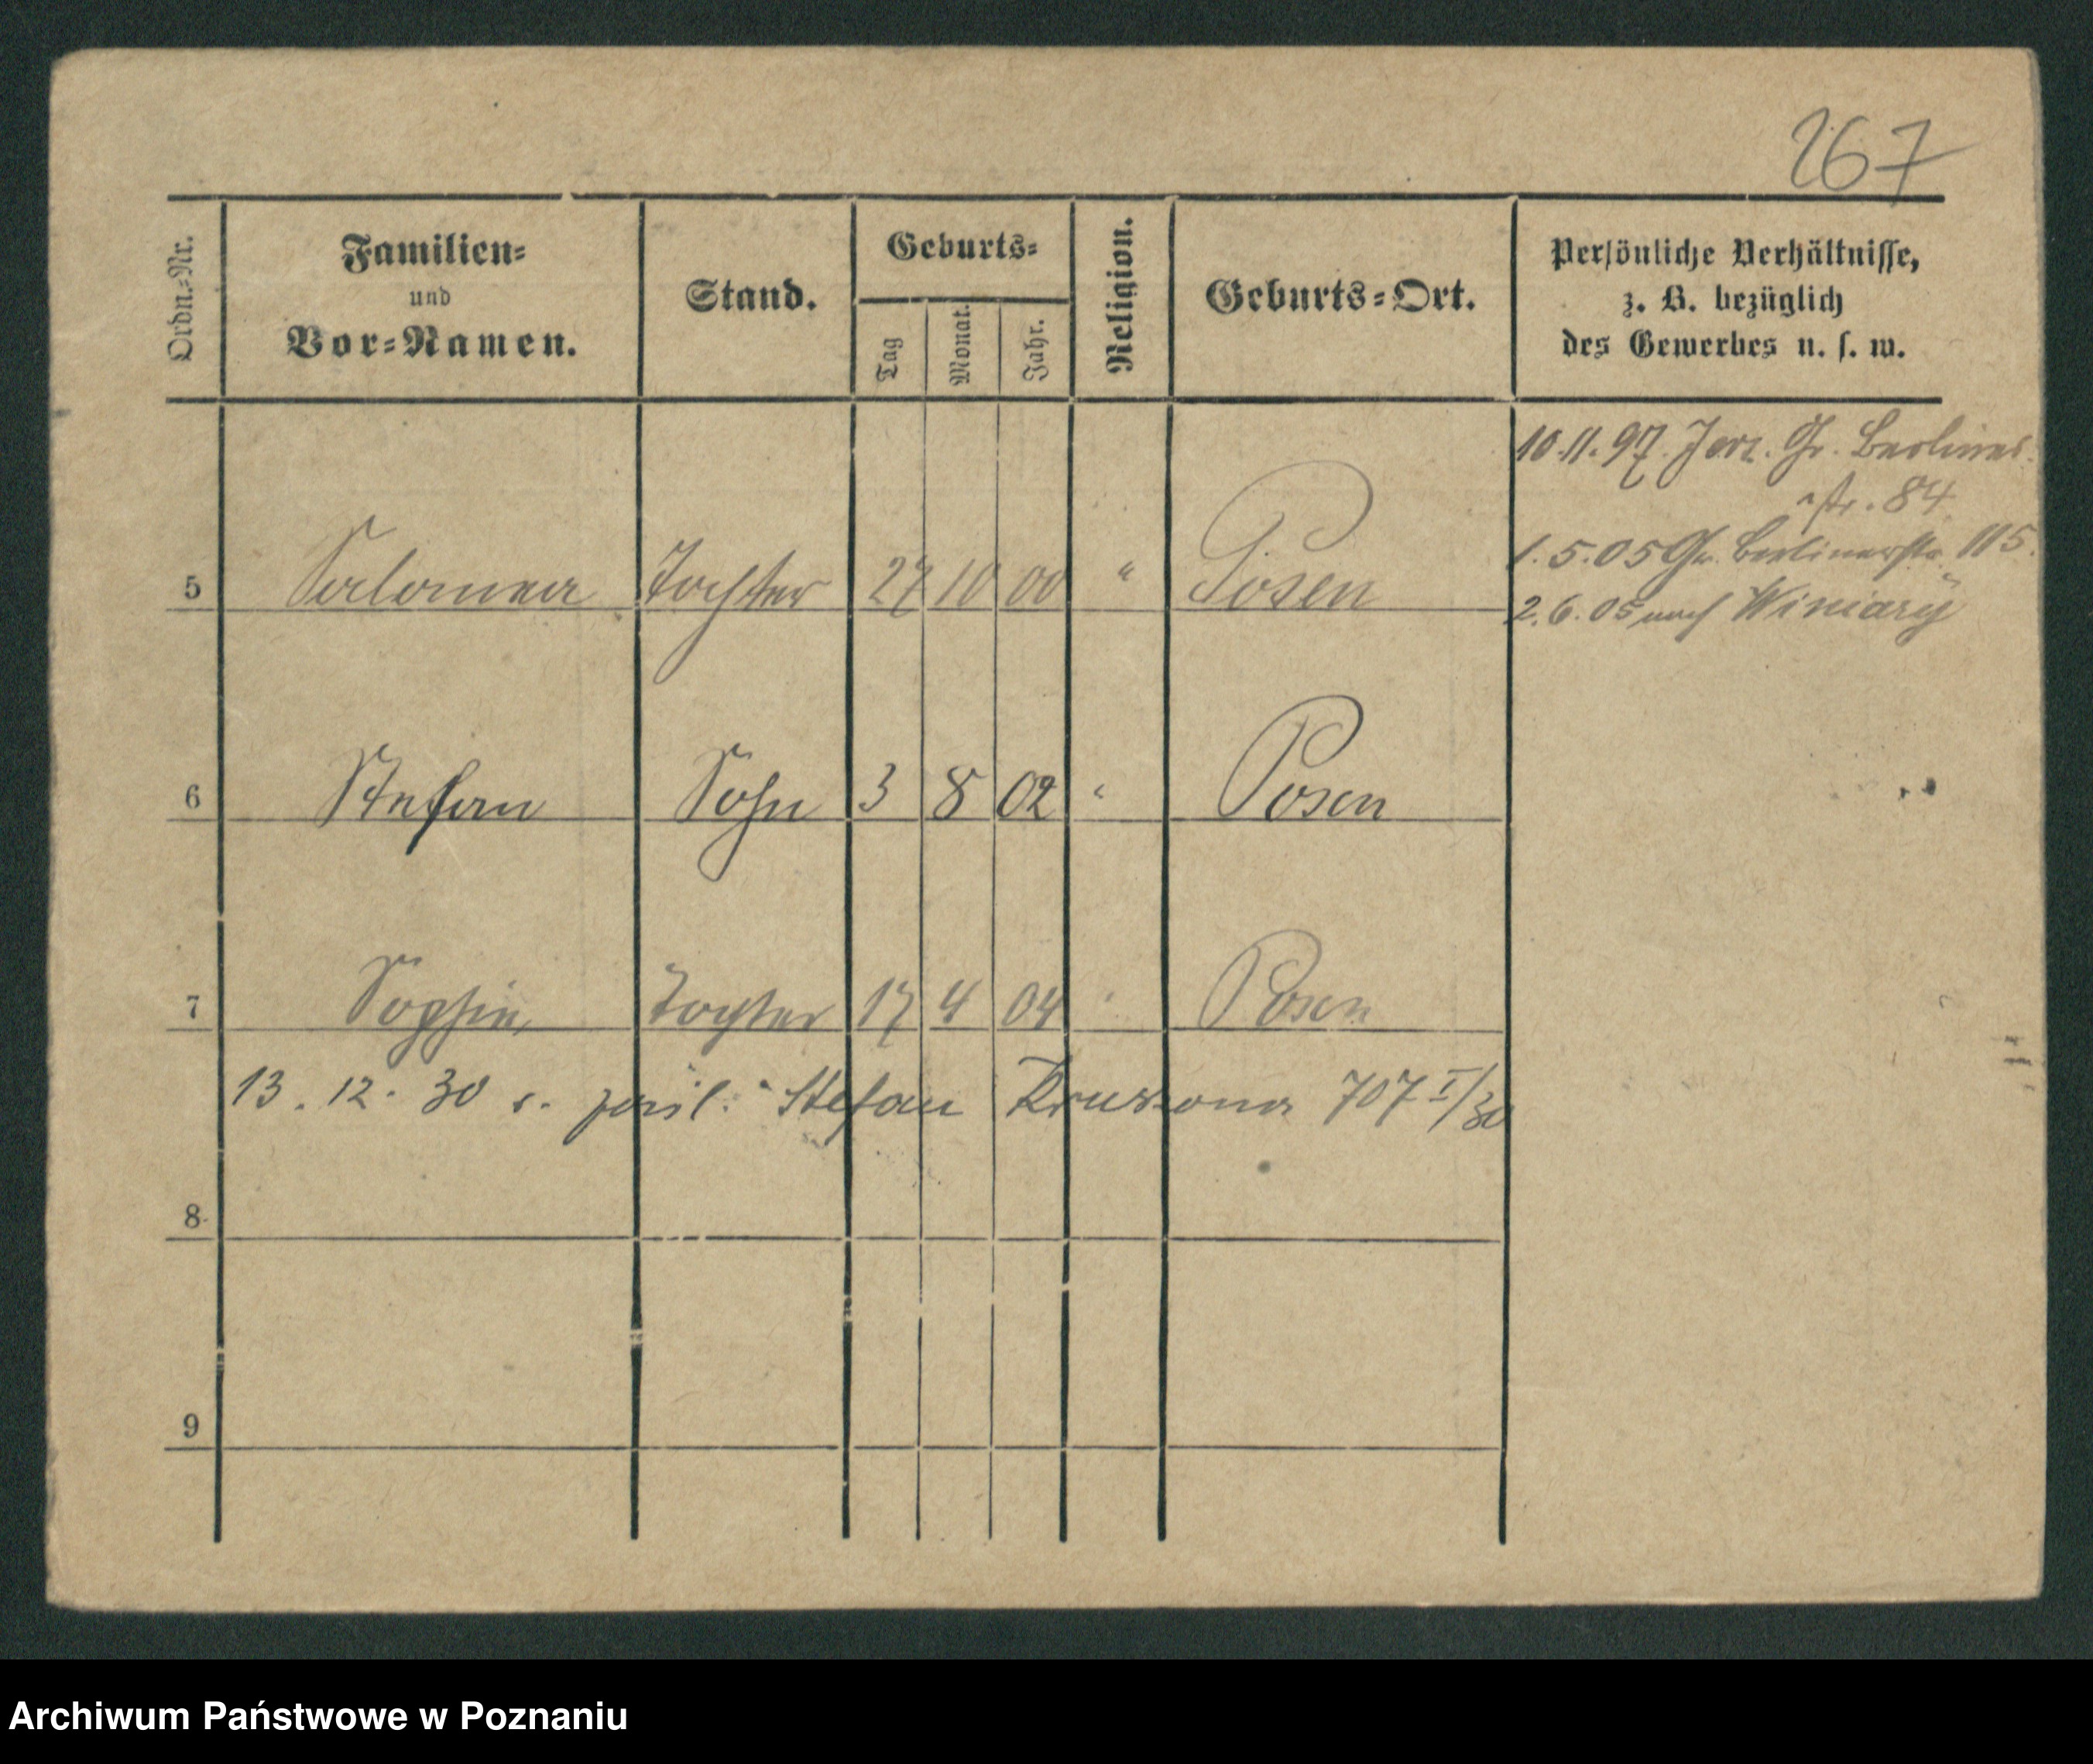 267
Ordn.-Nr. Familien- und Vor-Namen. Stand. Geburts- Tag Monat. Jahr. Religion. Geburts-Ort. Persönliche Verhältnisse, z. B. bezüglich des Gewerbes u. s. w.
10.11.97. Jerz. Gr. Berliner-
str. 84
1.5.05 Gr. Berlinerstr. 115.
5 Salomea Tochter 27 10 00 " Posen
2.6.05 nach Winiary
6 Stefan Sohn 3 8 02 " Posen
7 Sophie Tochter 17 4 04 " Posen
13. 12. 30 Stefan 707 I/30
8
9
Archiwum Państwowe w Poznaniu